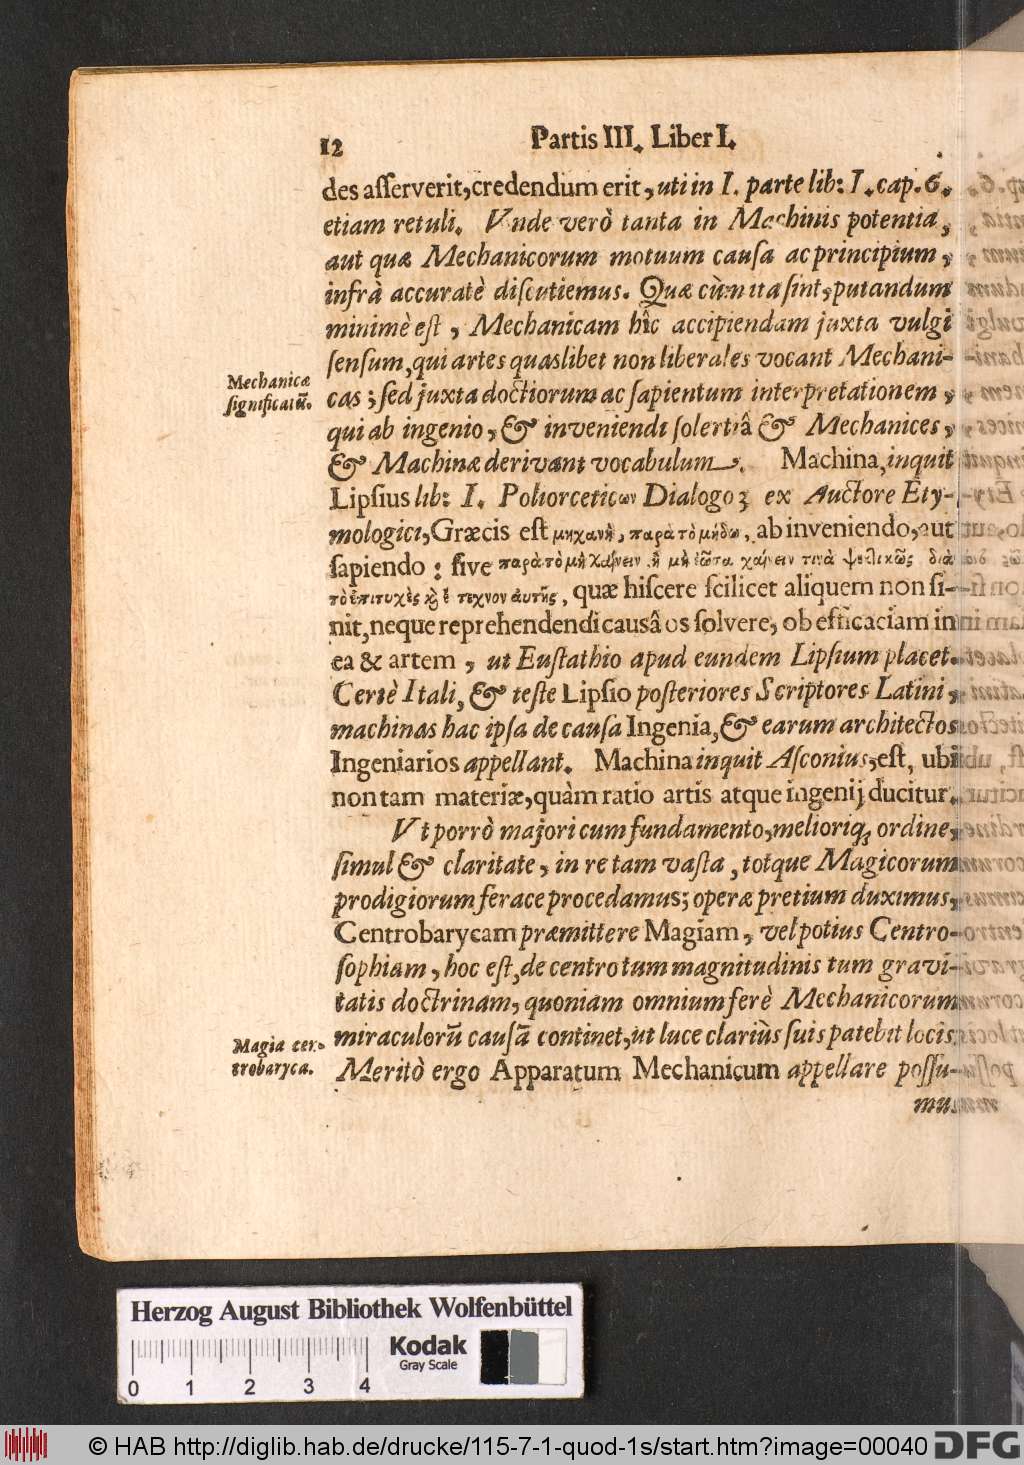 12 Partis III. Liber I.
des asserverit, credendum erit, uti in I. parte lib: I. cap. 6.
etiam retuli. Vnde verò tanta in Machinis potentia,
aut quæ Mechanicorum motuum causa ac principium,
infrà accuratè discutiemus. Quæ cùm ita sint, putandum
minimè est, Mechanicam hîc accipiendam juxta vulgi
sensum, qui artes quaslibet non liberales vocant Mechani-
Mechanicæ
significatū.
cas; sed juxta doctiorum ac sapientum interpretationem,
qui ab ingenio, & inveniendi solertiâ & Mechanices,
& Machinæ derivant vocabulum. Machina, inquit
Lipsius lib: I. Poliorceticων Dialogo 3 ex Auctore Ety-
mologici, Græcis est μηχανὴ, παρὰ τὸ μήδω, ab inveniendo, aut
sapiendo: sive παρὰ τὸ μὴ χαίνειν, ἢ μὴ ἐῶντα χαίνειν τινὰ ψεκτικῶς διὰ
τὸ ἐπιτυχὲς καὶ ἔντεχνον ἀυτῆς, quæ hiscere scilicet aliquem non si-
nit, neque reprehendendi causâ os solvere, ob efficaciam in
ea & artem, ut Eustathio apud eundem Lipsium placet.
Certè Itali, & teste Lipsio posteriores Scriptores Latini,
machinas hac ipsa de causa Ingenia, & earum architectos
Ingeniarios appellant. Machina inquit Asconius, est, ubi
non tam materiæ, quàm ratio artis atque ingenij ducitur.
Vt porrò majori cum fundamento, melioriq; ordine,
simul & claritate, in re tam vasta, totque Magicorum
prodigiorum ferace procedamus; operæ pretium duximus,
Centrobarycam præmittere Magiam, vel potius Centro-
sophiam, hoc est, de centro tum magnitudinis tum gravi-
tatis doctrinam, quoniam omnium ferè Mechanicorum
miraculorū causā continet, ut luce clariùs suis patebit locis.
Magia cen-
trobaryca.
Meritò ergo Apparatum Mechanicum appellare possu-
mus
Herzog August Bibliothek Wolfenbüttel
Kodak
Gray Scale
0 1 2 3 4
© HAB http://diglib.hab.de/drucke/115-7-1-quod-1s/start.htm?image=00040 DFG